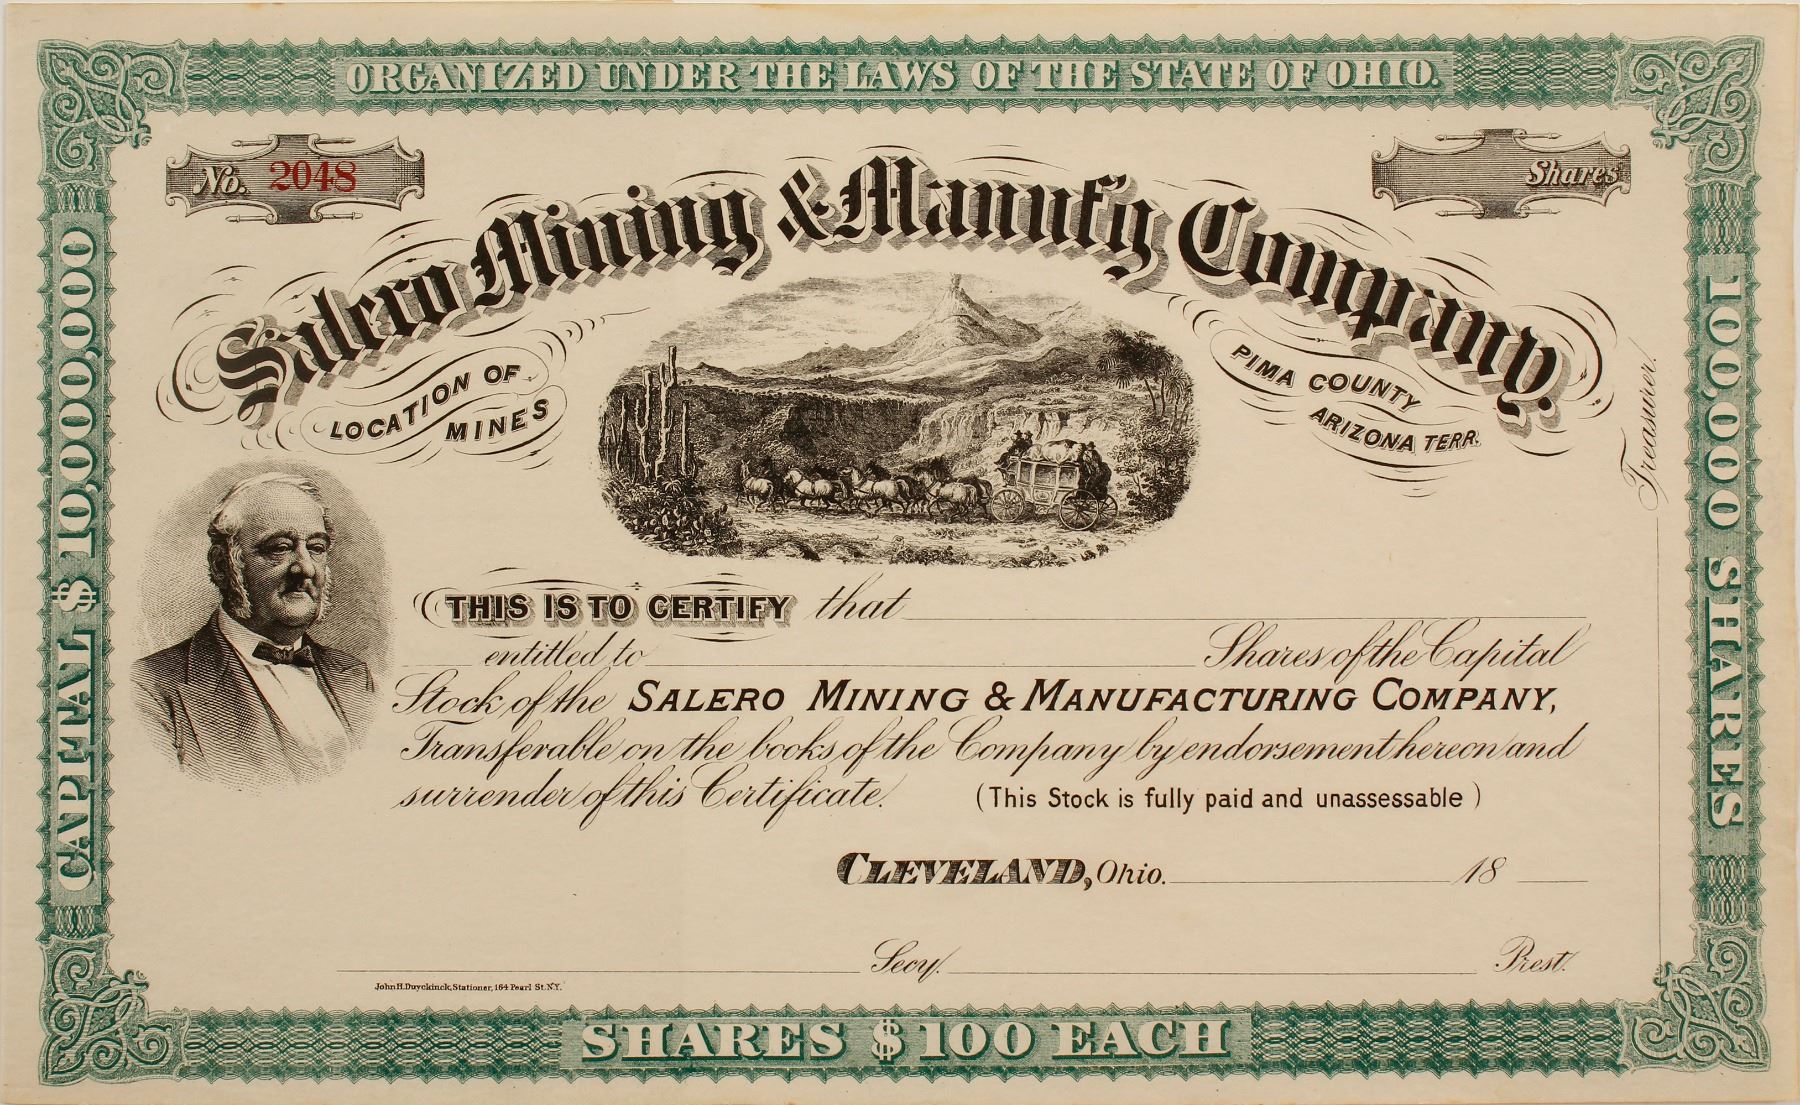 ORGANIZED UNDER THE LAWS OF THE STATE OF OHIO.
No. 2048
Shares
Salero Mining & Manuf'g Company.
LOCATION OF
MINES
PIMA COUNTY
ARIZONA TERR.
CAPITAL $10,000,000
100,000 SHARES
Treasurer.
THIS IS TO CERTIFY that
entitled to Shares of the Capital
Stock of the SALERO MINING & MANUFACTURING COMPANY,
Transferable on the books of the Company by endorsement hereon and
surrender of this Certificate. (This Stock is fully paid and unassessable)
CLEVELAND, Ohio. 18
Secy. Prest.
John H. Duyckinck, Stationer, 164 Pearl St. N.Y.
SHARES $100 EACH